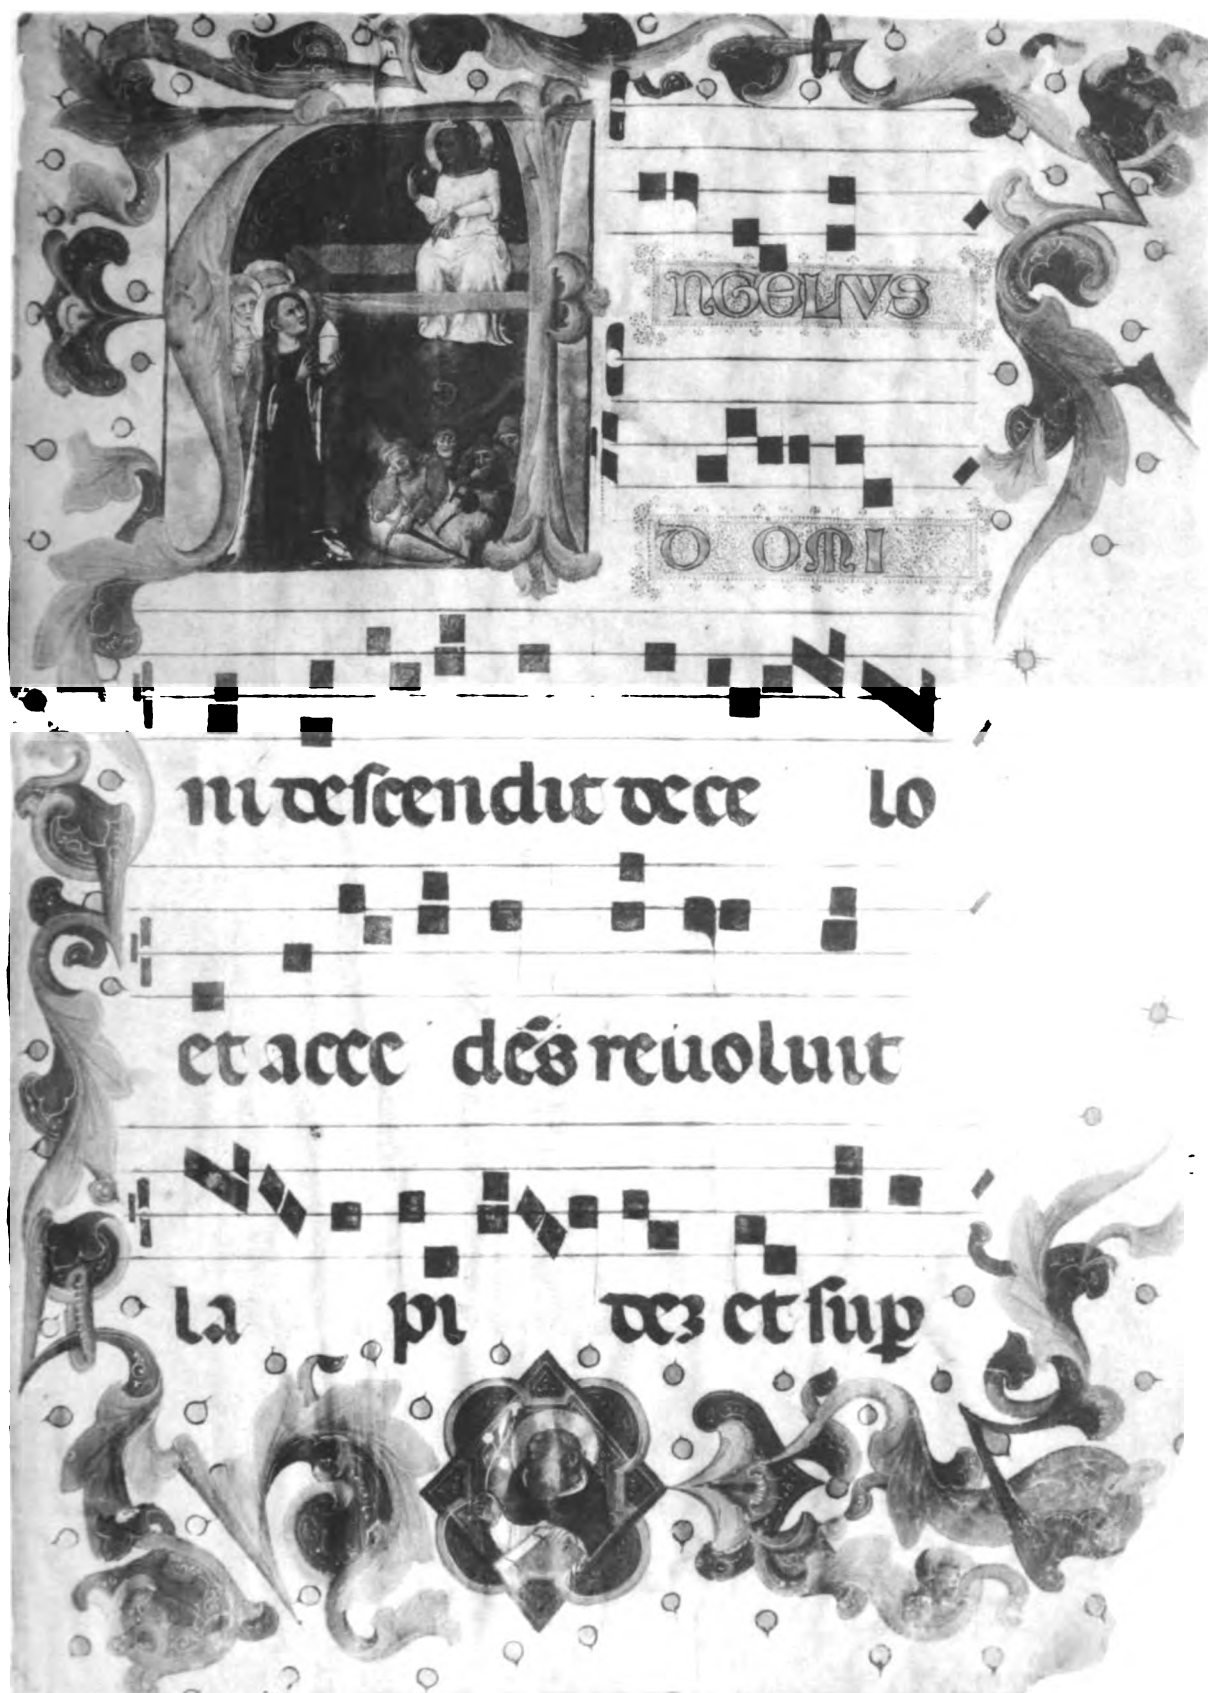 ANGELVS
DOMI
ni descendit de ce lo
et acce dẽs reuoluit
la pi deʒ et sup